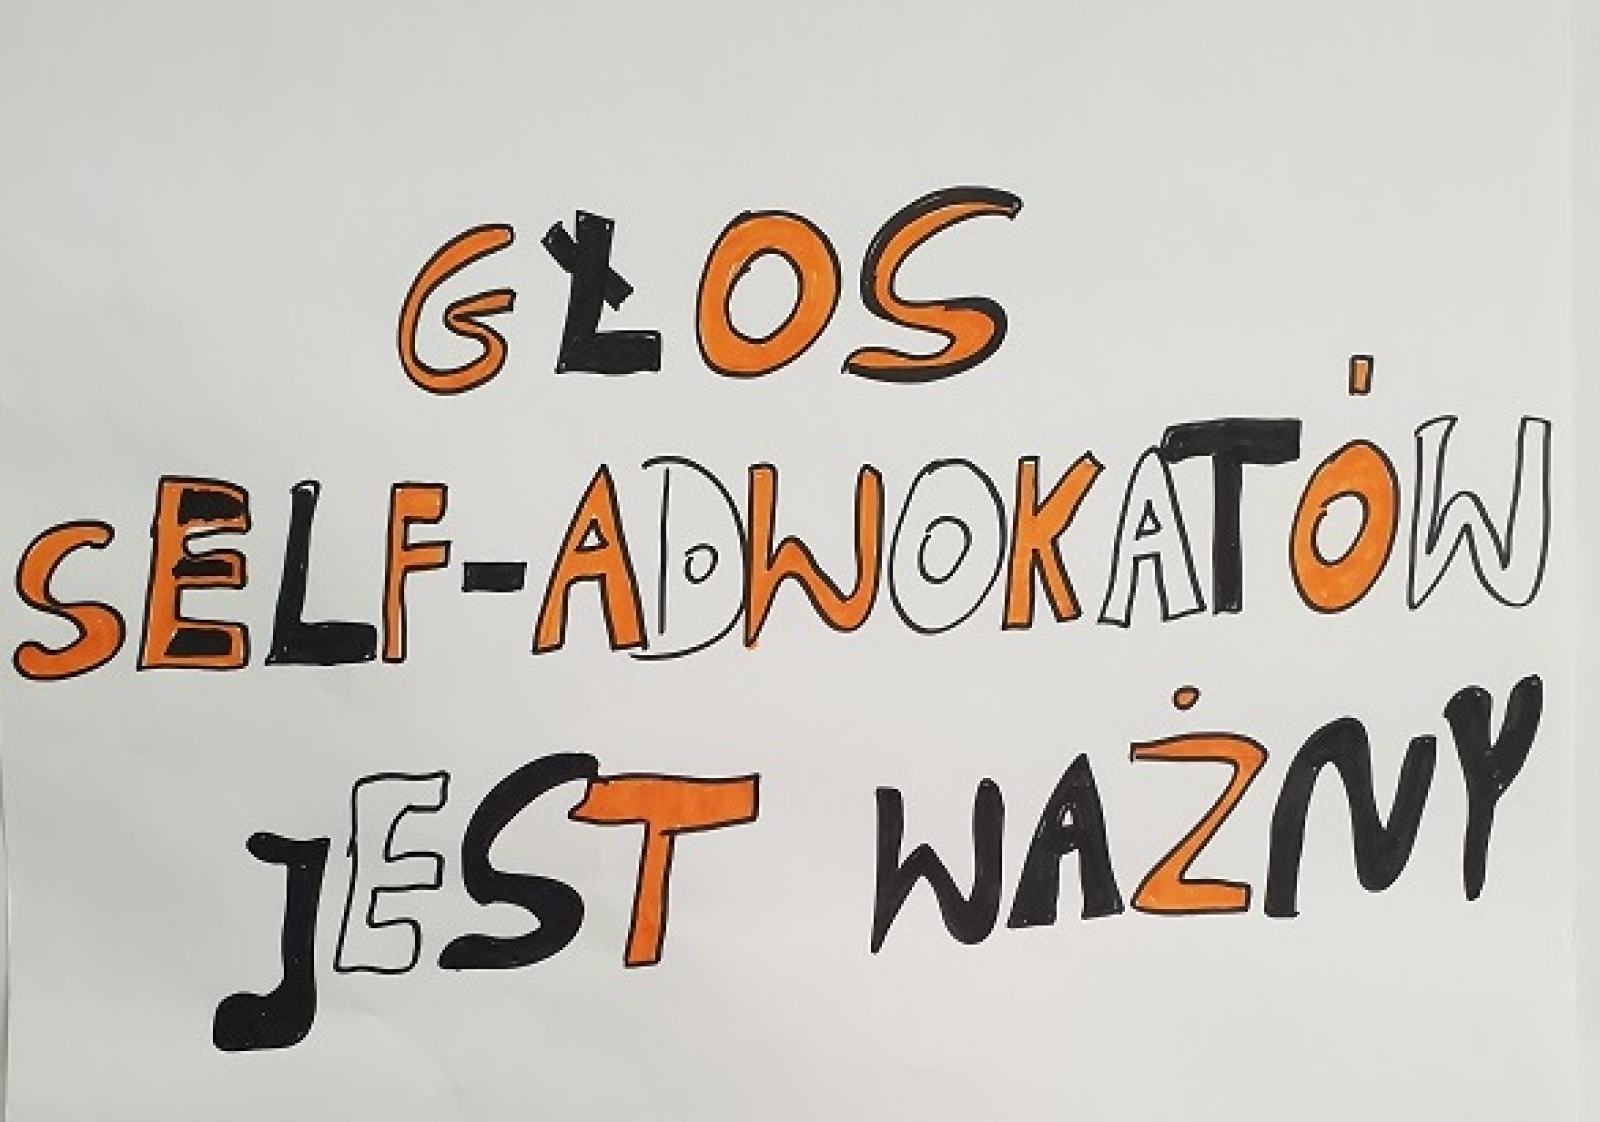 GŁOS
SELF-ADWOKATÓW
JEST WAŻNY